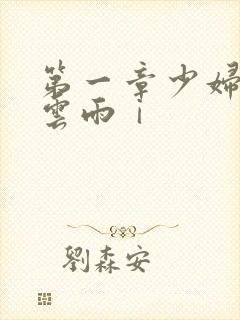 第一章少婦
雲雨｜
劉森安